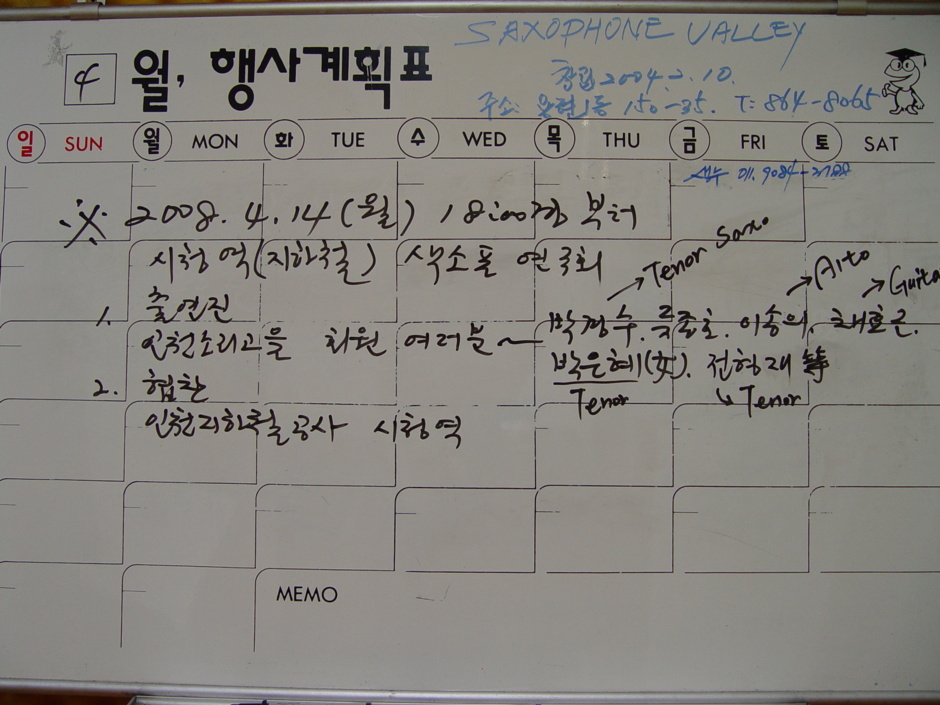 SAXOPHONE VALLEY
4 월, 행사계획표
창립 2004. 2. 10.
주소: 1동 150-35. T: 864-8065
일 SUN 월 MON 화 TUE 수 WED 목 THU 금 FRI 토 SAT
011. 9084-
※ 2008. 4. 14 (월) 18:00정 부터
시청역(지하철) 색소폰 연주회
Tenor Saxo
Alto
Guita
1. 출연진
인천소리고을 회원 여러분~ 박정수. 이송의.
박은혜(女). 전형재 等
Tenor
Tenor
2. 협찬
인천지하철공사 시청역
MEMO